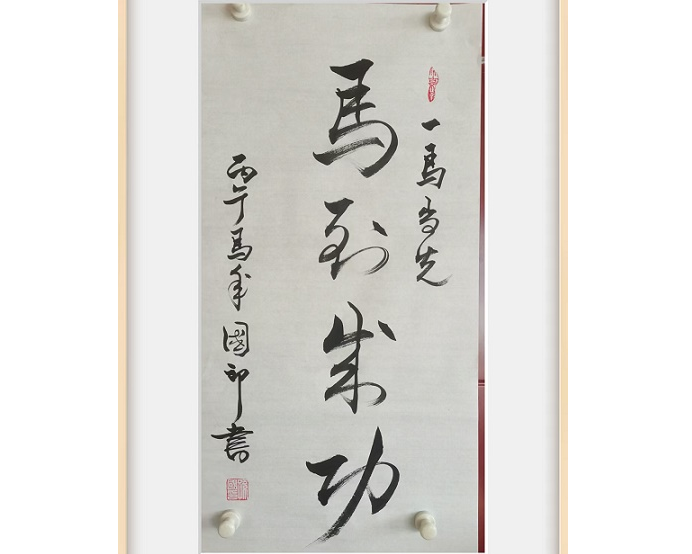 一馬當先
馬到成功
丙午馬年國印書